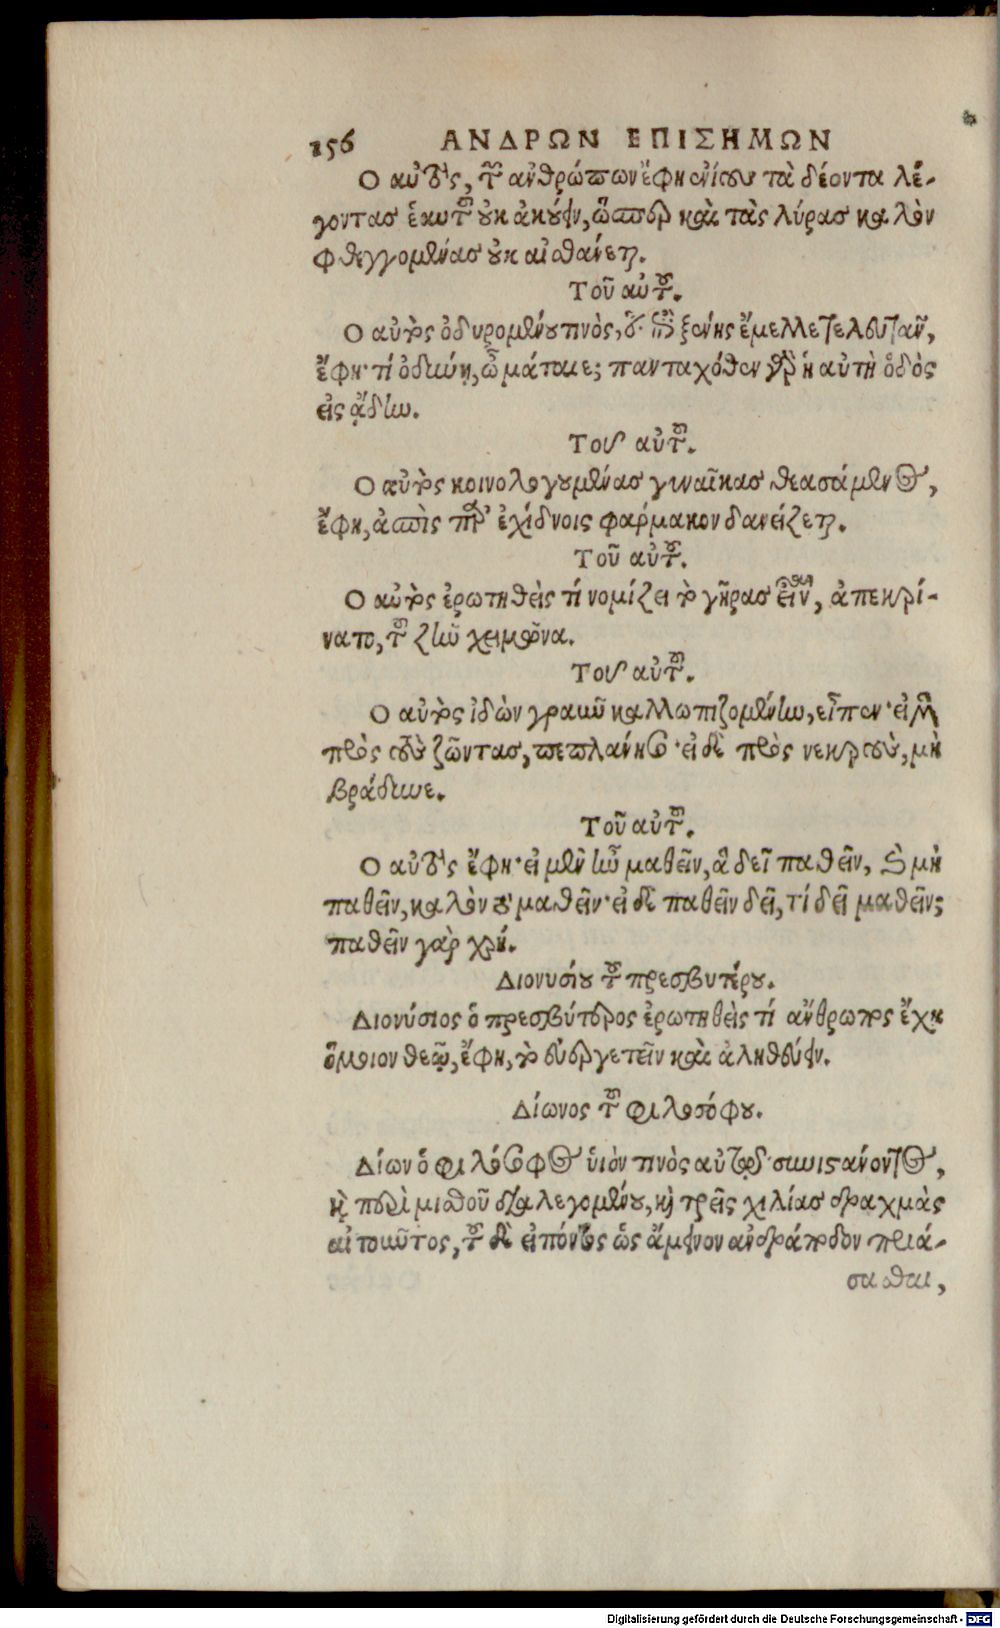 156 ΑΝΔΡΩΝ ΕΠΙΣΗΜΩΝ
Ο αὐτὸς, τῶν ἀνθρώπων ἔφη ἐνίους τὰ δέοντα λέ-
γοντας ἑαυτῶν οὐκ ἀκούειν, ὥσπερ καὶ τὰς λύρας καλὸν
φθεγγομένας οὐκ αἰσθάνεται.
Τοῦ αὐτοῦ.
Ο αὐτὸς ὀδυρομένου τινὸς, ὅτι ἐπὶ ξένης ἔμελλε τελευτᾶν,
ἔφη· τί ὀδύνῃ, ὦ μάταιε; πανταχόθεν γὰρ ἡ αὐτὴ ὁδὸς
εἰς ᾅδην.
Τοῦ αὐτοῦ.
Ο αὐτὸς κοινολογουμένας γυναῖκας θεασάμενος,
ἔφη, ἀσπὶς παρ’ ἐχίδνοις φάρμακον δανείζεται.
Τοῦ αὐτοῦ.
Ο αὐτὸς ἐρωτηθεὶς τί νομίζει τὸ γῆρας εἶναι, ἀπεκρί-
νατο, τοῦ ζῆν χειμῶνα.
Τοῦ αὐτοῦ.
Ο αὐτὸς ἰδὼν γραῦν καλλωπιζομένην, εἶπεν· εἰ μὲν
πρὸς τοὺς ζῶντας, πεπλάνησαι· εἰ δὲ πρὸς νεκροὺς, μὴ
βράδυνε.
Τοῦ αὐτοῦ.
Ο αὐτὸς ἔφη· εἰ μὲν ἦν μαθεῖν, ἃ δεῖ παθεῖν, καὶ μὴ
παθεῖν, καλὸν τὸ μαθεῖν· εἰ δὲ παθεῖν δεῖ, τί δεῖ μαθεῖν;
παθεῖν γὰρ χρή.
Διονυσίου τοῦ πρεσβυτέρου.
Διονύσιος ὁ πρεσβύτερος ἐρωτηθεὶς τί ἄνθρωπος ἔχει
ὅμοιον θεῷ, ἔφη, τὸ εὐεργετεῖν καὶ ἀληθεύειν.
Δίωνος τοῦ φιλοσόφου.
Δίων ὁ φιλόσοφος ὑιόν τινὸς αὐτῷ συνιστάνοντος,
καὶ περὶ μισθοῦ διαλεγομένου, καὶ τρεῖς χιλίας δραχμὰς
αἰτοῦντος, τοῦ δὲ εἰπόντος ὡς ἄμεινον ἀνδράποδον πριά-
σασθαι,
Digitalisierung gefördert durch die Deutsche Forschungsgemeinschaft - DFG